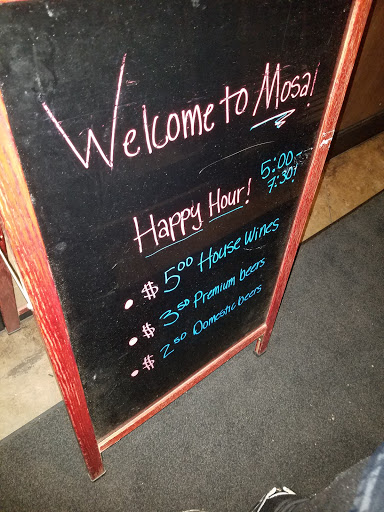 Welcome to Mosa!
Happy Hour! 5:00-
7:30!
• $5.00 House Wines
• $3.50 Premium beers
• $2.50 Domestic beers